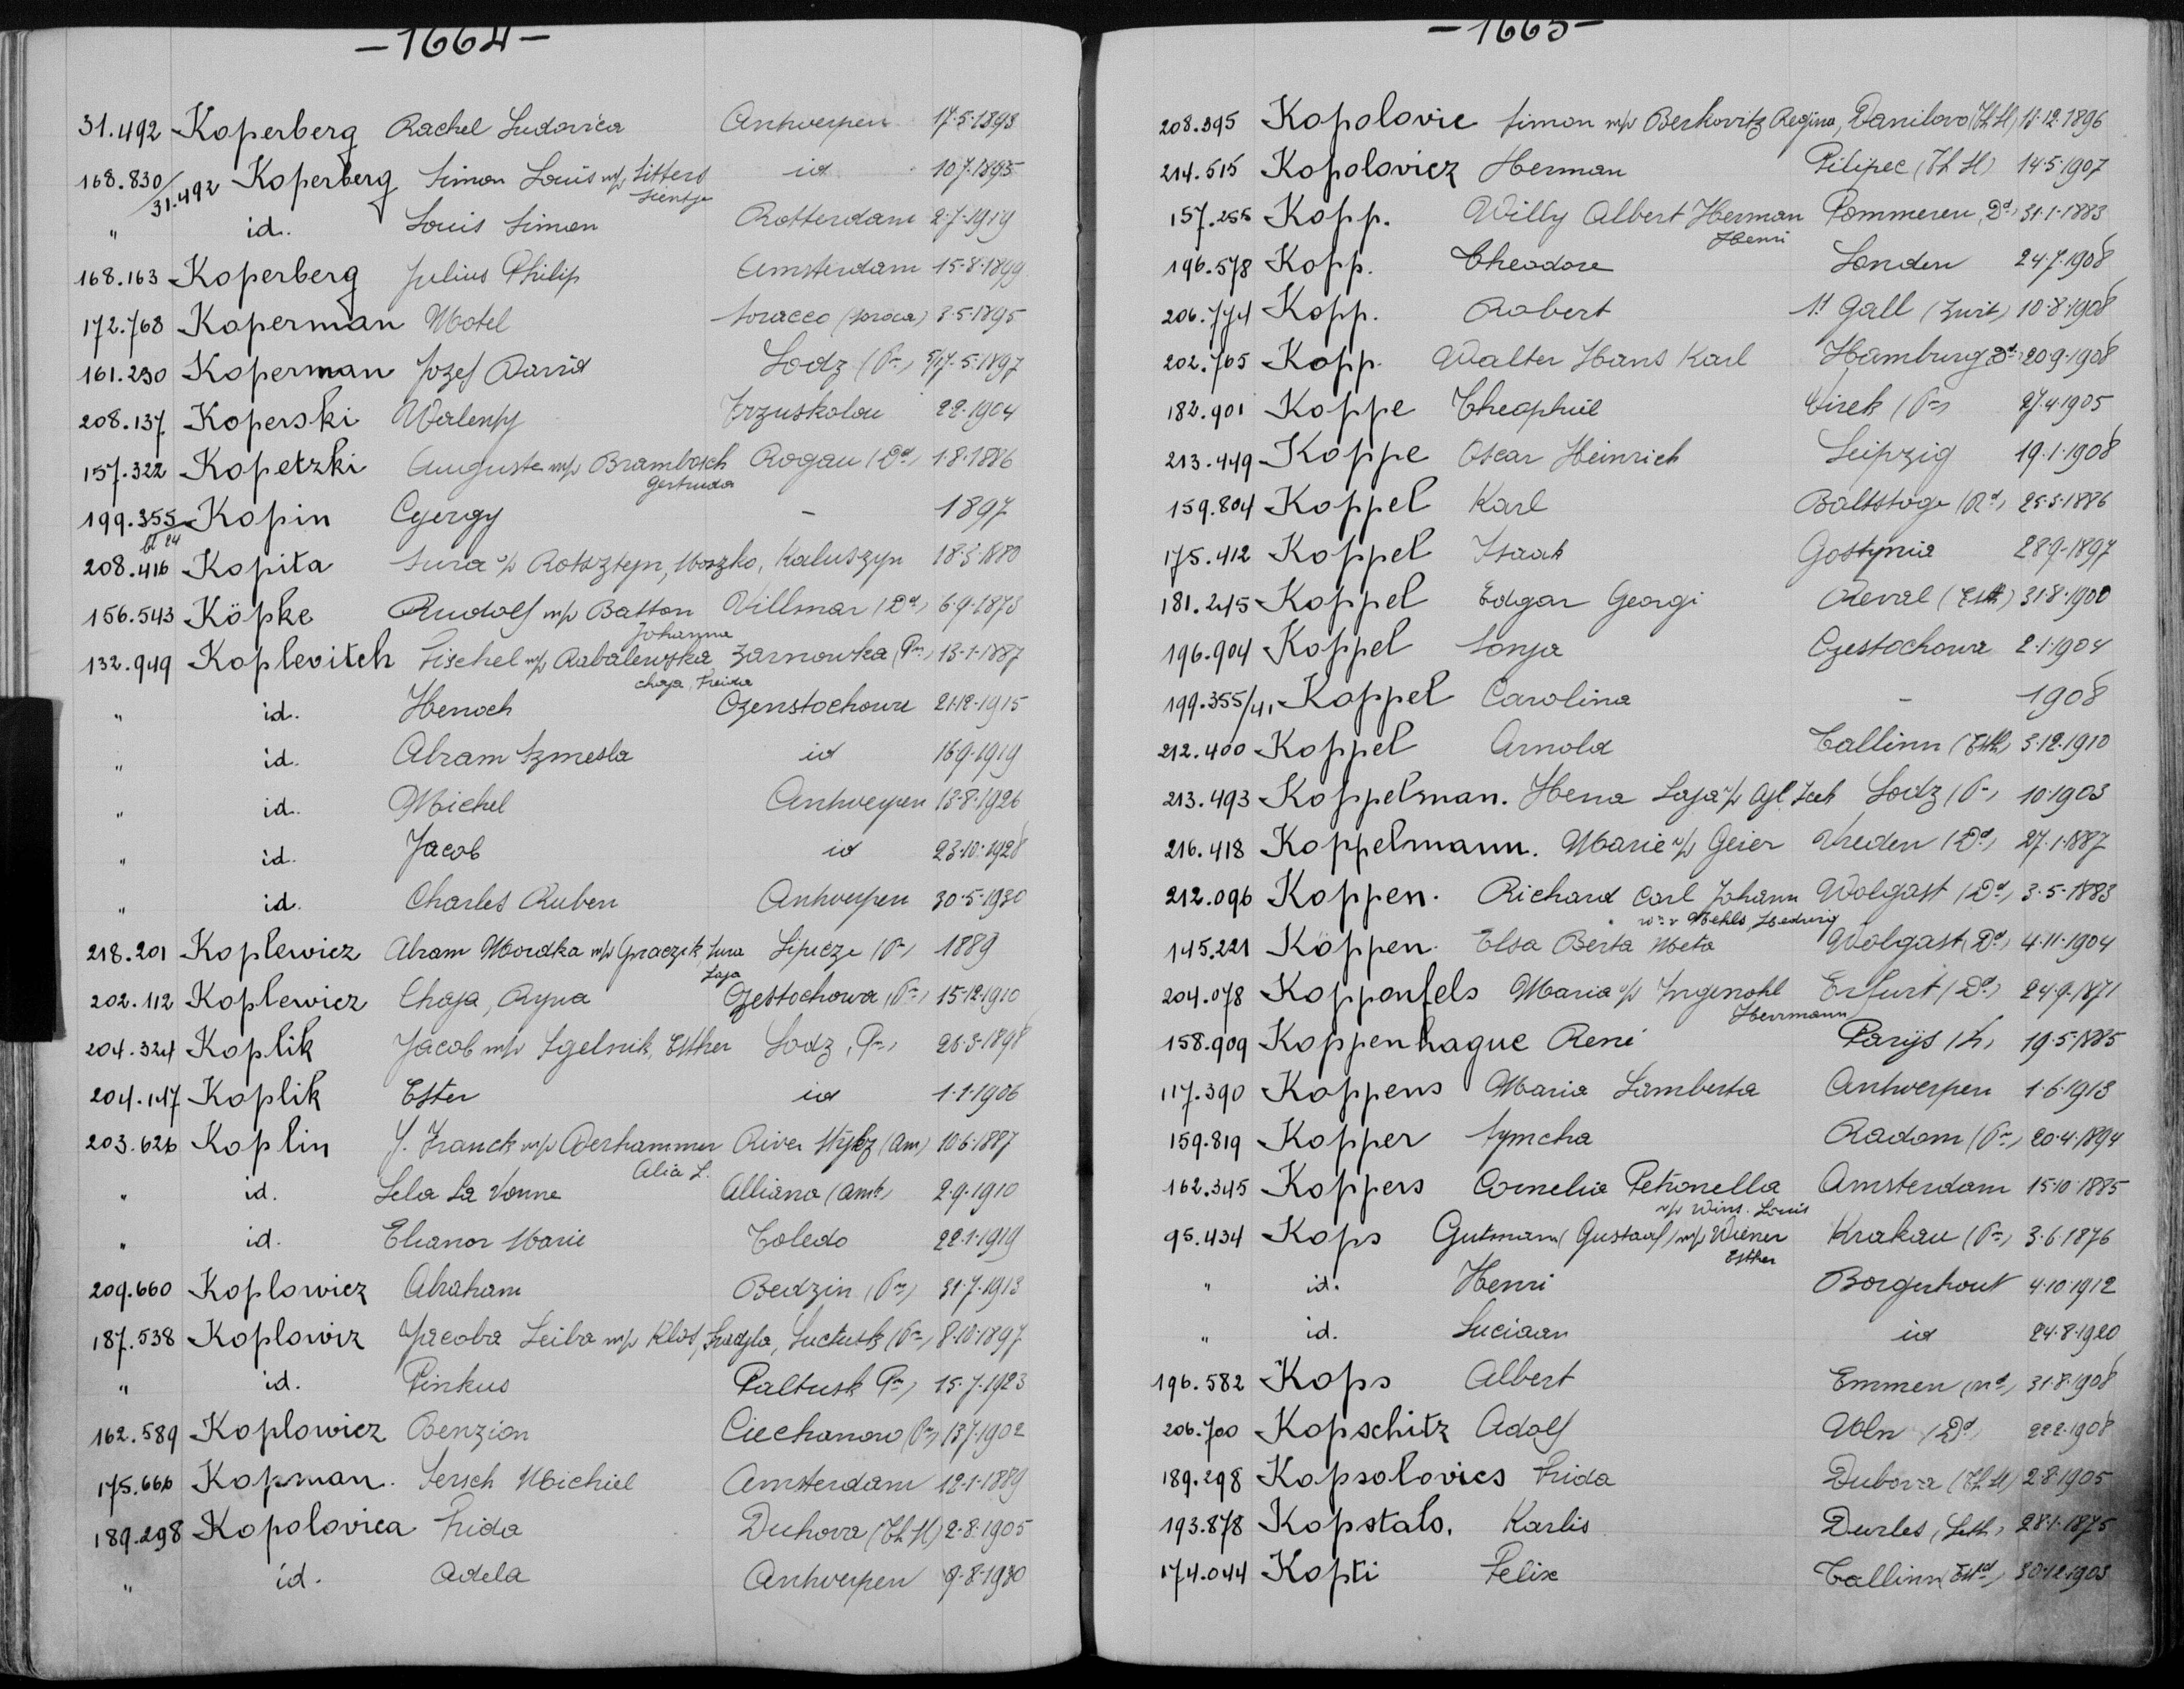 -1664-
31.492 Koperberg Rachel Ludovica Antwerpen 17-5-1893
168.830/31.492 Koperberg Simon Louis m/v Sitters Sientje id 10-7-1895
" id. Louis Simon Rotterdam 2-7-1919
168.163 Koperberg Julius Philip Amsterdam 15-8-1899
172.768 Koperman Motel Soracco (Soroca) 3-5-1895
161.230 Koperman Jozef David Lodz (Pn) 5/17-5-1897
208.137 Koperski Walenty Krzuskolau 2-2-1904
157.322 Kopetzki Auguste m/v Brambosch Gertruda Rogau (Dd) 1-8-1886
199.355 bl 24 Kopin Cyergy - 1897
208.416 Kopita Sura v/v Rotsztejn, Moszko, Kaluszyn 18-3-1880
156.543 Köpke Rudolf m/v Batton Johanna Villmar (Dd) 6-9-1873
132.949 Koplevitch Fischel m/v Rabalewska Chaja, Freida Zarnowka (Pn) 13-1-1887
" id. Henoch Czenstochowa 21-12-1915
" id. Abram Szmesla id 16-9-1919
" id. Michel Antwerpen 13-8-1926
" id. Jacob id 23-10-1928
" id. Charles Ruben Antwerpen 30-5-1930
218.201 Koplewicz Abram Mordka m/v Graczyk, Sura Laja Lipicze (Pn) 1889
202.112 Koplewicz Chaja, Ryna Czestochowa (Pn) 15-12-1910
204.324 Koplik Jacob m/v Igelnik, Esther Lodz (Pn) 26-3-1898
204.147 Koplik Ester id 1-1-1906
203.626 Koplin J. Franck m/v Overhammer Alia L. River (Am) 10-6-1887
" id. Lela La Vonne Alliana (Amk) 2-9-1910
" id. Eleanor Marie Toledo 22-1-1919
209.660 Koplowicz Abraham Bedzin (Pn) 31-7-1913
187.538 Koplowicz Jacoba Leiba m/v Klos, Fradjla, Suctusk (Pn) 8-10-1897
" id. Pinkus Paltusk (Pn) 15-7-1923
162.589 Koplowicz Benzion Ciechanow (Pn) 13-7-1902
175.666 Kopman. Lersch Michiel Amsterdam 12-1-1889
189.298 Kopolovica Frida Duhova (Th Sl) 2-8-1905
" id. Adela Antwerpen 9-8-1930
-1665-
208.395 Kopolovic Simon m/v Berkovitz Regina, Danilovo (Th Sl) 11-12-1896
214.515 Kopolovicz Herman Pilipec (Th Sl) 14-5-1907
157.255 Kopp. Willy Albert Herman Henri Pommeren, Dd 31-1-1883
196.578 Kopp. Theodore Londen 24-7-1908
206.774 Kopp. Robert St Gall (Zwit) 10-8-1908
202.705 Kopp. Walter Hans Karl Hamburg Dd 20-9-1908
182.901 Koppe Theophiel Wirek (Pn) 27-4-1905
213.449 Koppe Oscar Heinrich Leipzig 19-1-1908
159.804 Koppel Karl Baltstoge (Rd) 25-3-1886
175.412 Koppel Isaak Gostynia 28-9-1897
181.245 Koppel Edgar Georgi Reval (Estl) 31-8-1900
196.904 Koppel Sonja Czestochowa 2-1-1904
199.355/41 Koppel Carolina - 1908
212.400 Koppel Arnold Tallinn (Estl) 3-12-1910
213.493 Koppelman. Hena Laja v/v Ajl. Icek Lodz (Pn) 10-1903
216.418 Koppelmann. Marie v/v Geier Vreden (Dd) 27-1-1887
212.096 Koppen. Richard Carl Johann wr v Mehls, Hedwig Wolgast (Dd) 3-5-1883
145.221 Köppen. Elsa Berta Meta Wolgast, Dd 4-11-1904
204.078 Koppenfels Maria v/v Ingenohl Herrmann Erfurt (Dd) 24-9-1871
158.909 Koppenhague René Parijs (Fr) 19-5-1885
117.390 Koppens Maria Lamberta Antwerpen 1-6-1913
159.819 Kopper Symcha Radom (Pn) 20-4-1894
162.345 Koppers Cornelia Petronella v/v Wins. Louis Amsterdam 15-10-1885
95.434 Kops Gutmann (Gustaaf) m/v Wiener Esther Krakau (Pn) 3-6-1876
" id. Henri Borgerhout 4-10-1912
" id. Luciaan id 24-8-1920
196.582 Kops Albert Emmen (Nd) 31-8-1908
206.700 Kopschitz Adolf Köln (Dd) 22-2-1908
189.298 Kopsolovics Frida Dubova (Th Sl) 2-8-1905
193.878 Kopstals. Karlis Durles (Leth) 28-1-1875
174.044 Kopti Felix Tallinn (Estd) 30-12-1903